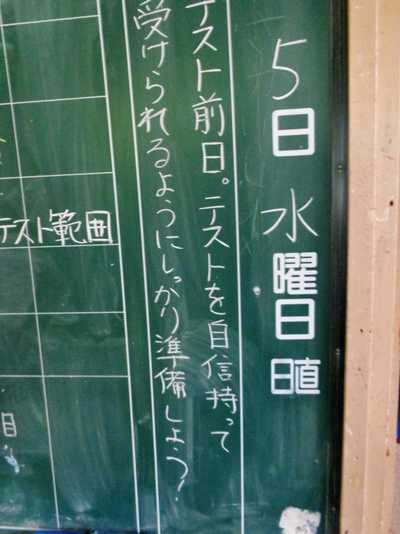 5日 水曜日 日直
テスト前日。テストを自信持って
受けられるようにしっかり準備しよう!
テスト範囲